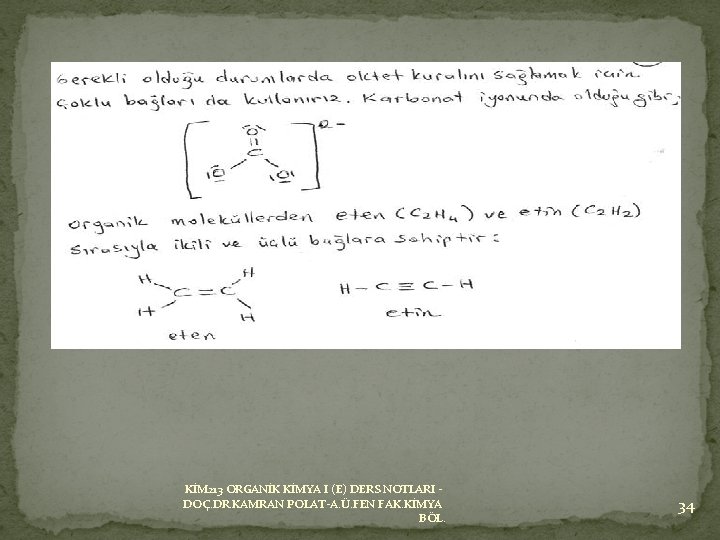 Gerekli olduğu durumlarda oktet kuralını sağlamak için
Çoklu bağları da kullanırız. Karbonat iyonunda olduğu gibi;
2-
O
C
O O
Organik moleküllerden eten (C2H4) ve etin (C2H2)
sırasıyla ikili ve üçlü bağlara sahiptir:
H H
C = C H - C ≡ C - H
H H
etin
eten
KİM213 ORGANİK KİMYA I (E) DERS NOTLARI -
DOÇ.DR.KAMRAN POLAT-A.Ü.FEN FAK.KİMYA
BÖL.
34